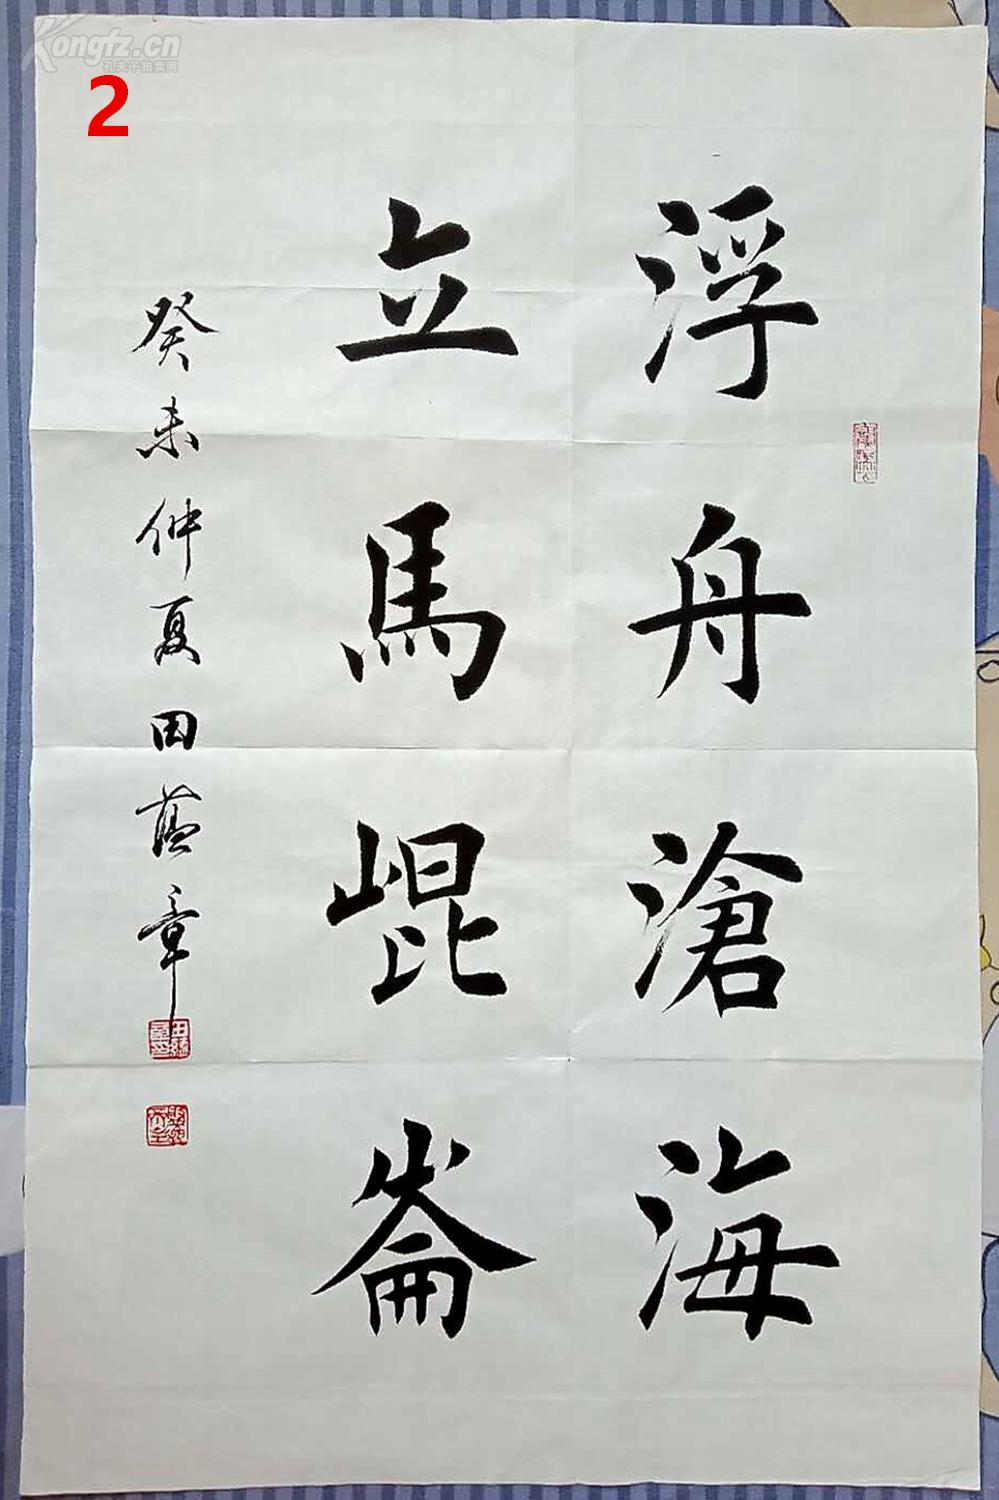 Kongfz.cn
孔夫子拍卖网
2
浮舟滄海
立馬崐崙
癸未仲夏田蕴章